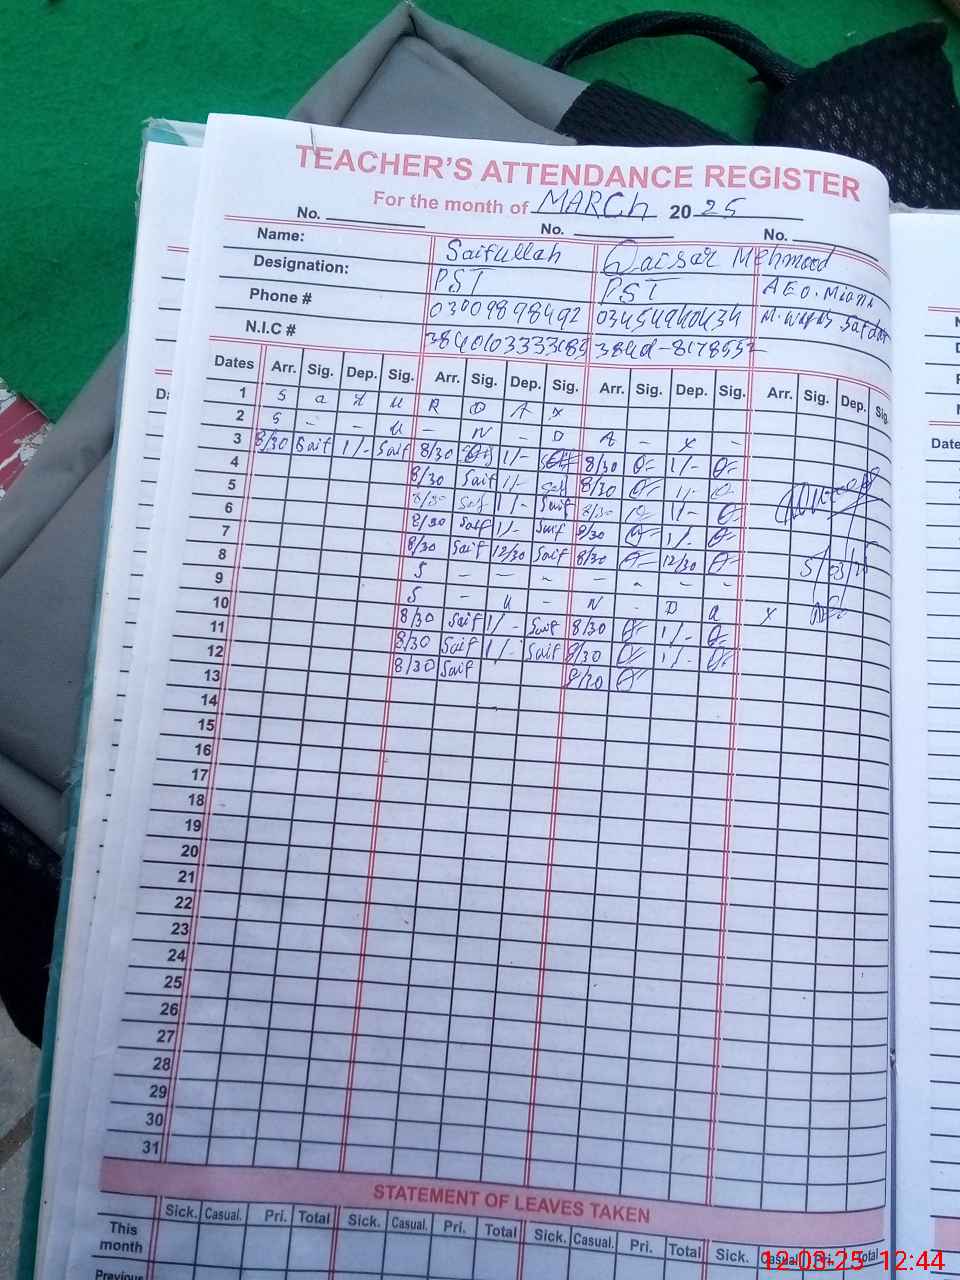 TEACHER'S ATTENDANCE REGISTER
For the month of MARCH 2025
No. No. No.
Name: Saifullah Qaisar Mehmood
Designation: PST PST AEO. Miani
Phone # 03009898492 03454940434 M. Waqas Safdar
N.I.C #
Dates Arr. Sig. Dep. Sig. Arr. Sig. Dep. Sig. Arr. Sig. Dep. Sig. Arr. Sig. Dep. Sig.
1 S a t u R D A Y
2 S - - u - N - D A - Y -
3 8/30 Saif 1/- Saif 8/30 1/- 8/30 1/-
4 8/30 Saif 1/- Saif 8/30 1/-
5 8/30 Saif 1/- Saif 8/30 1/-
6 8/30 Saif 1/- Saif 8/30 1/-
7 8/30 Saif 12/30 Saif 8/30 12/30
8 S - - - - - - -
9 S - u - N - D a y
10 8/30 Saif 1/- Saif 8/30 1/-
11 8/30 Saif 1/- Saif 8/30 1/-
12 8/30 Saif 8/30
13
14
15
16
17
18
19
20
21
22
23
24
25
26
27
28
29
30
31
STATEMENT OF LEAVES TAKEN
Sick. Casual. Pri. Total Sick. Casual. Pri. Total Sick. Casual. Pri. Total Sick. Casual. Pri. Total
This month
Previous
12-03-25 12:44